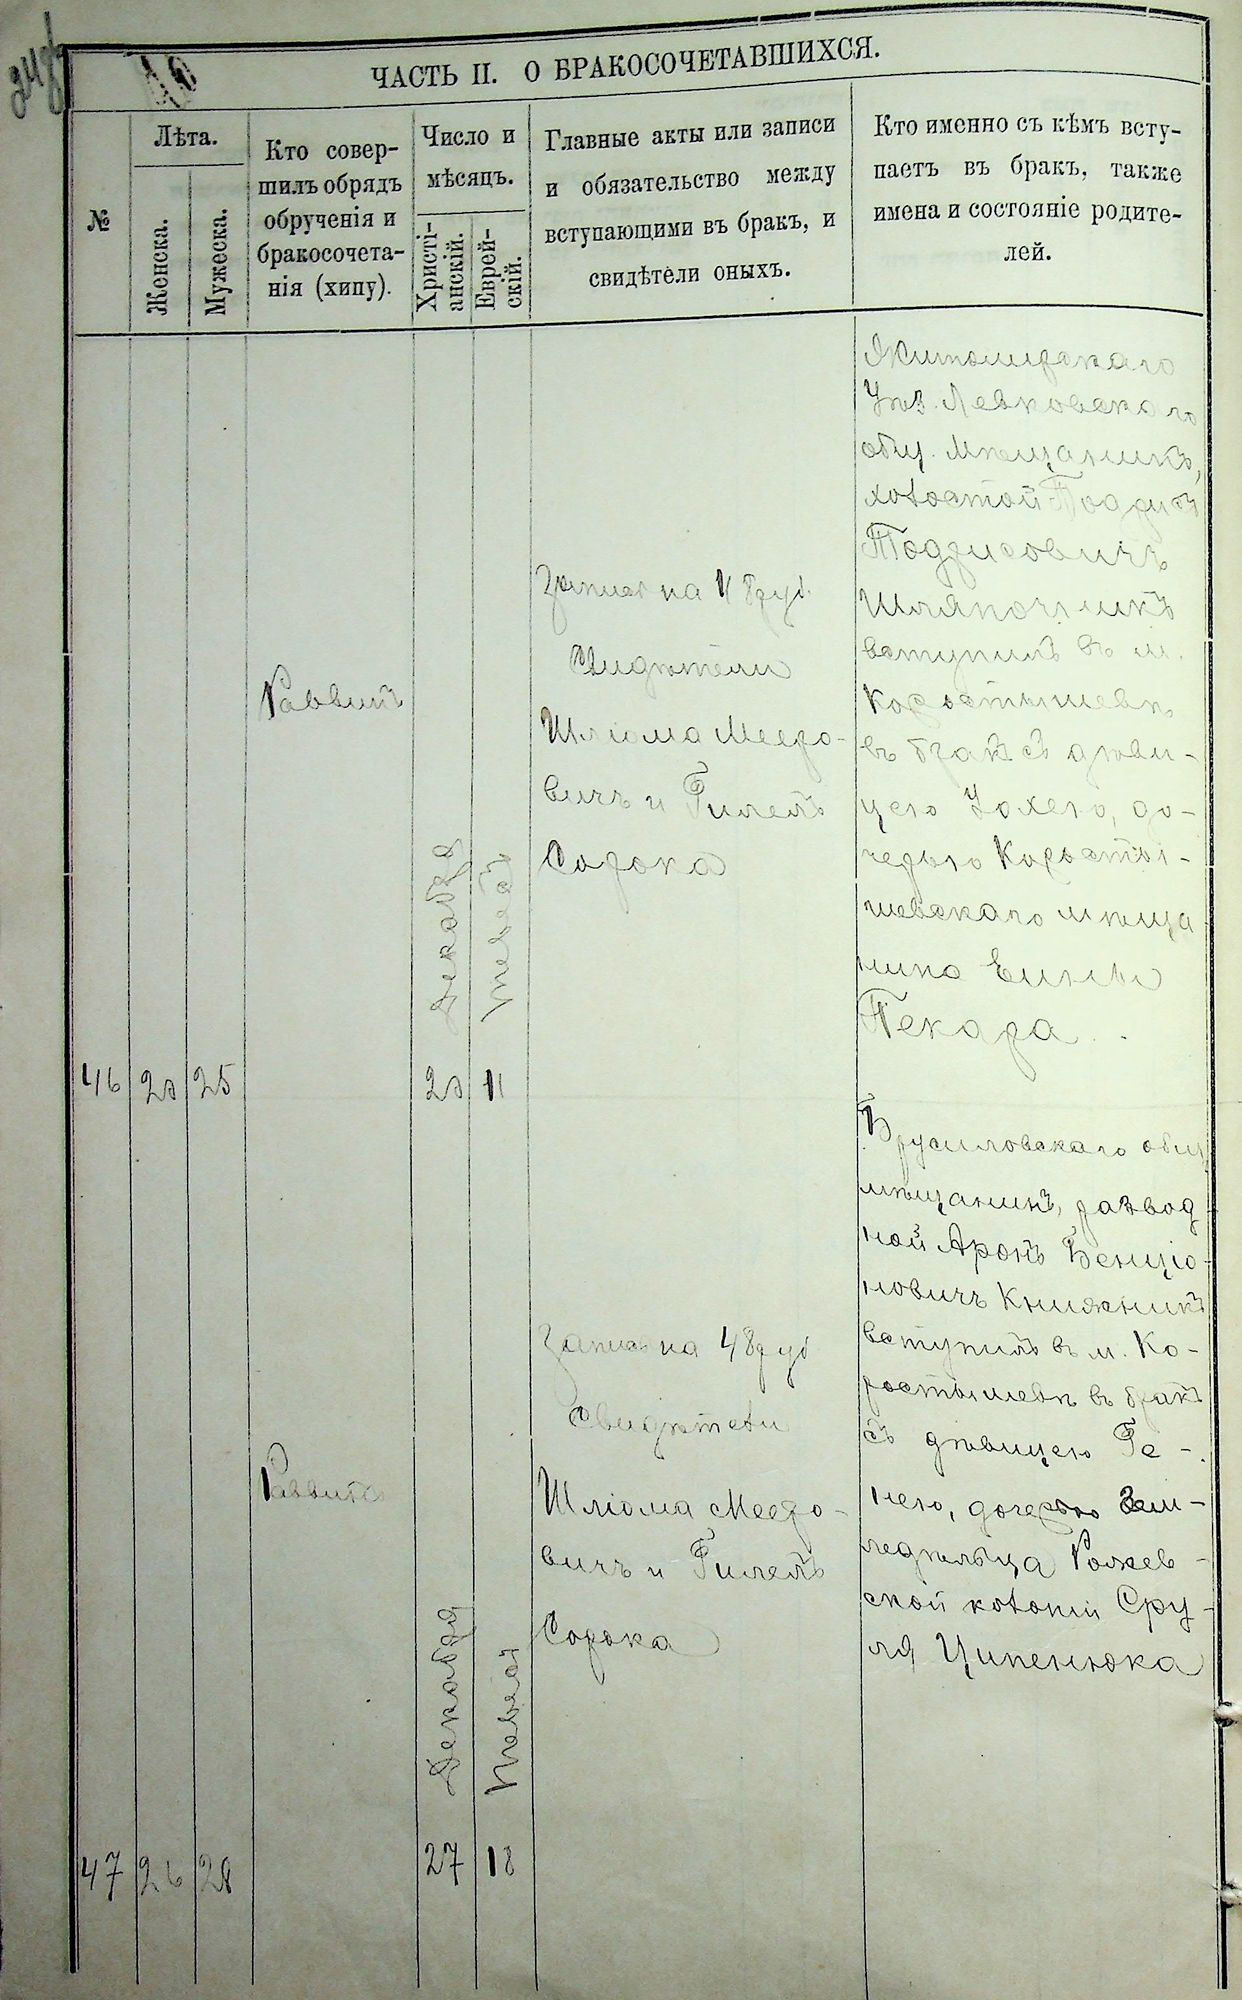 ЧАСТЬ II. О БРАКОСОЧЕТАВШИХСЯ.
№
Лѣта.
Женска.
Мужеска.
Кто совер-
шилъ обрядъ
обрученія и
бракосочета-
нія (хипу).
Число и
мѣсяцъ.
Христі-
анскій.
Еврей-
скій.
Главные акты или записи
и обязательство между
вступающими въ бракъ, и
свидѣтели оныхъ.
Кто именно съ кѣмъ всту-
паетъ въ бракъ, также
имена и состояніе родите-
лей.
46
20
25
Раввинъ
Декабря
20
Тевета
11
Запись на
Свидѣтели
Шліома Мееро-
вичъ и Гилелъ
Сорока
Житомирскаго
Уѣз. Левковскаго
общ. мѣщанинъ,
холостой
Шляпочникъ
вступилъ въ м.
Коростышевѣ
въ бракъ съ дѣви-
цею до-
черью Коросты-
шевскаго мѣща
нина
Пекара
47
26
28
Раввинъ
Декабря
27
Тевета
18
Запись на 48 руб
Свидѣтели
Шліома Мееро-
вичъ и Гилелъ
Сорока
Брусиловскаго общ
мѣщанинъ, развод
ной Аронъ Бенціо-
новичъ Книжникъ
вступилъ въ м. Ко-
ростышевѣ въ бракъ
съ дѣвицею Ге-
нею, дочерью Зем-
ледѣльца Рожев-
ской колоніи Сру-
ля Ципенюка